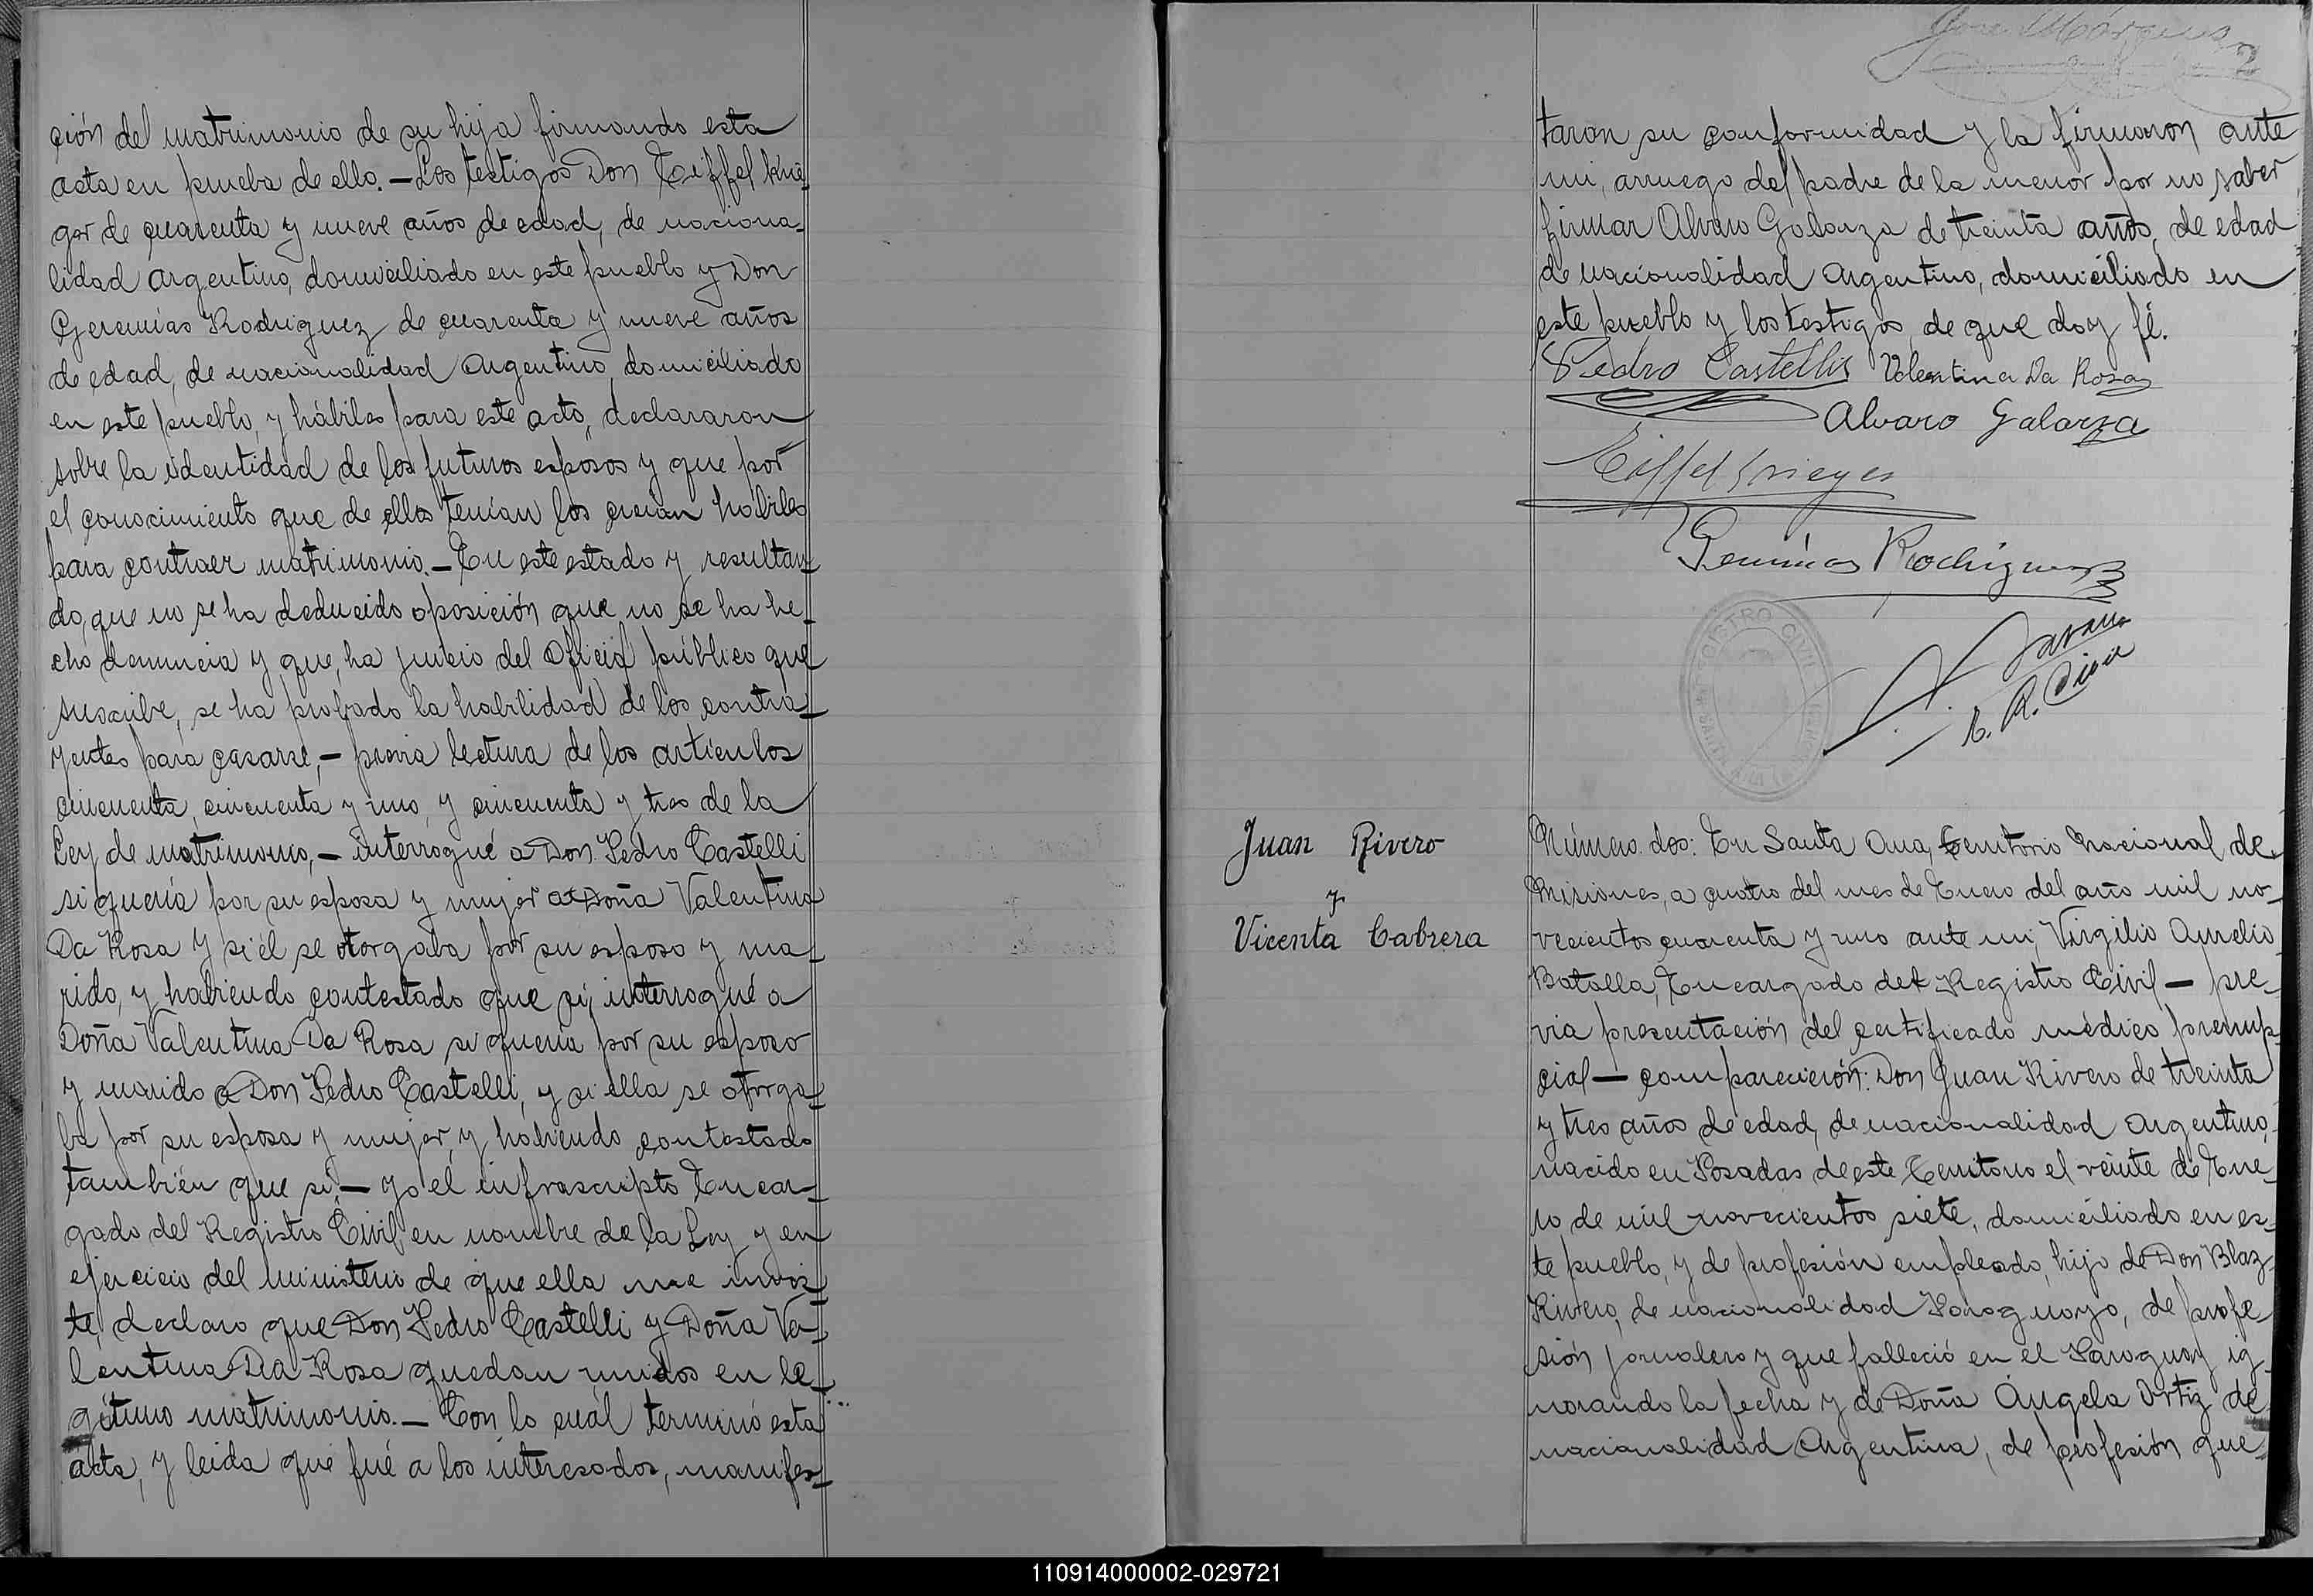 ción del matrimonio de su hija firmando esta
acta en prueba de ello.—Los testigos Don Eiffel Krie-
ger de cuarenta y nueve años de edad, de naciona-
lidad Argentino, domiciliado en este pueblo y Don
Geremías Rodriguez de cuarenta y nueve años
de edad, de nacionalidad Argentino, domiciliado
en este pueblo, y hábiles para este acto, declararon
sobre la identidad de los futuros esposos y que por
el conocimiento que de ellos tenían los creian hábiles
para contraer matrimonio.—En este estado y resultan-
do, que no se ha deducido oposición que no se ha he-
cho denuncia y que, ha juicio del Oficial público que
suscribe, se ha probado la habilidad de los contra-
yentes para casarse,— previa lectura de los artículos
cincuenta, cincuenta y uno, y cincuenta y tres de la
Ley de matrimonio,— interrogué a Don Pedro Castelli
si quería por su esposa y mujer a Doña Valentina
Da Rosa y si él se otorgaba por su esposo y ma-
rido, y habiendo contestado que si, interrogué a
Doña Valentina Da Rosa si quería por su esposo
y marido a Don Pedro Castelli, y si ella se otorga-
ba por su esposa y mujer, y habiendo contestado
también que si,— yo el infrascripto Encar-
gado del Registro Civil en nombre de la Ley y en
ejercicio del ministerio de que ella me invis-
te, declaro que Don Pedro Castelli y Doña Va-
lentina Da Rosa quedan unidos en le-
gítimo matrimonio.— Con lo cuál terminó esta
acta, y leida que fué a los interesados, manifes-
2
taron su conformidad y la firmaron ante
mi, arruego del padre de la menor por no saber
firmar Alvaro Galarza de treinta años, de edad
de nacionalidad Argentino, domiciliado en
este pueblo y los testigos, de que doy fé.
Pedro Castelli Valentina Da Rosa
Alvaro Galarza
Eiffel Krieger
Geremías Rodriguez
REGISTRO CIVIL
Juan Rivero
y
Vicenta Cabrera
Número dos: En Santa Ana, Territorio Nacional de
Misiones, a cuatro del mes de Enero del año mil no-
vecientos cuarenta y uno ante mi, Virgilio Aurelio
Batalla, Encargado del Registro Civil — pre-
via presentación del certificado médico prenup-
cial — comparecierón: Don Juan Rivero de treinta
y tres años de edad, de nacionalidad Argentino,
nacido en Posadas de este Territorio el veinte de Ene-
ro de mil novecientos siete, domiciliado en es-
te pueblo, y de profesión empleado, hijo de Don Blaz
Rivero, de nacionalidad Paraguayo, de profe-
sión jornalero y que falleció en el Paraguay ig-
norando la fecha y de Doña Ángela Ortiz de
nacionalidad Argentina, de profesión que-
110914000002-029721